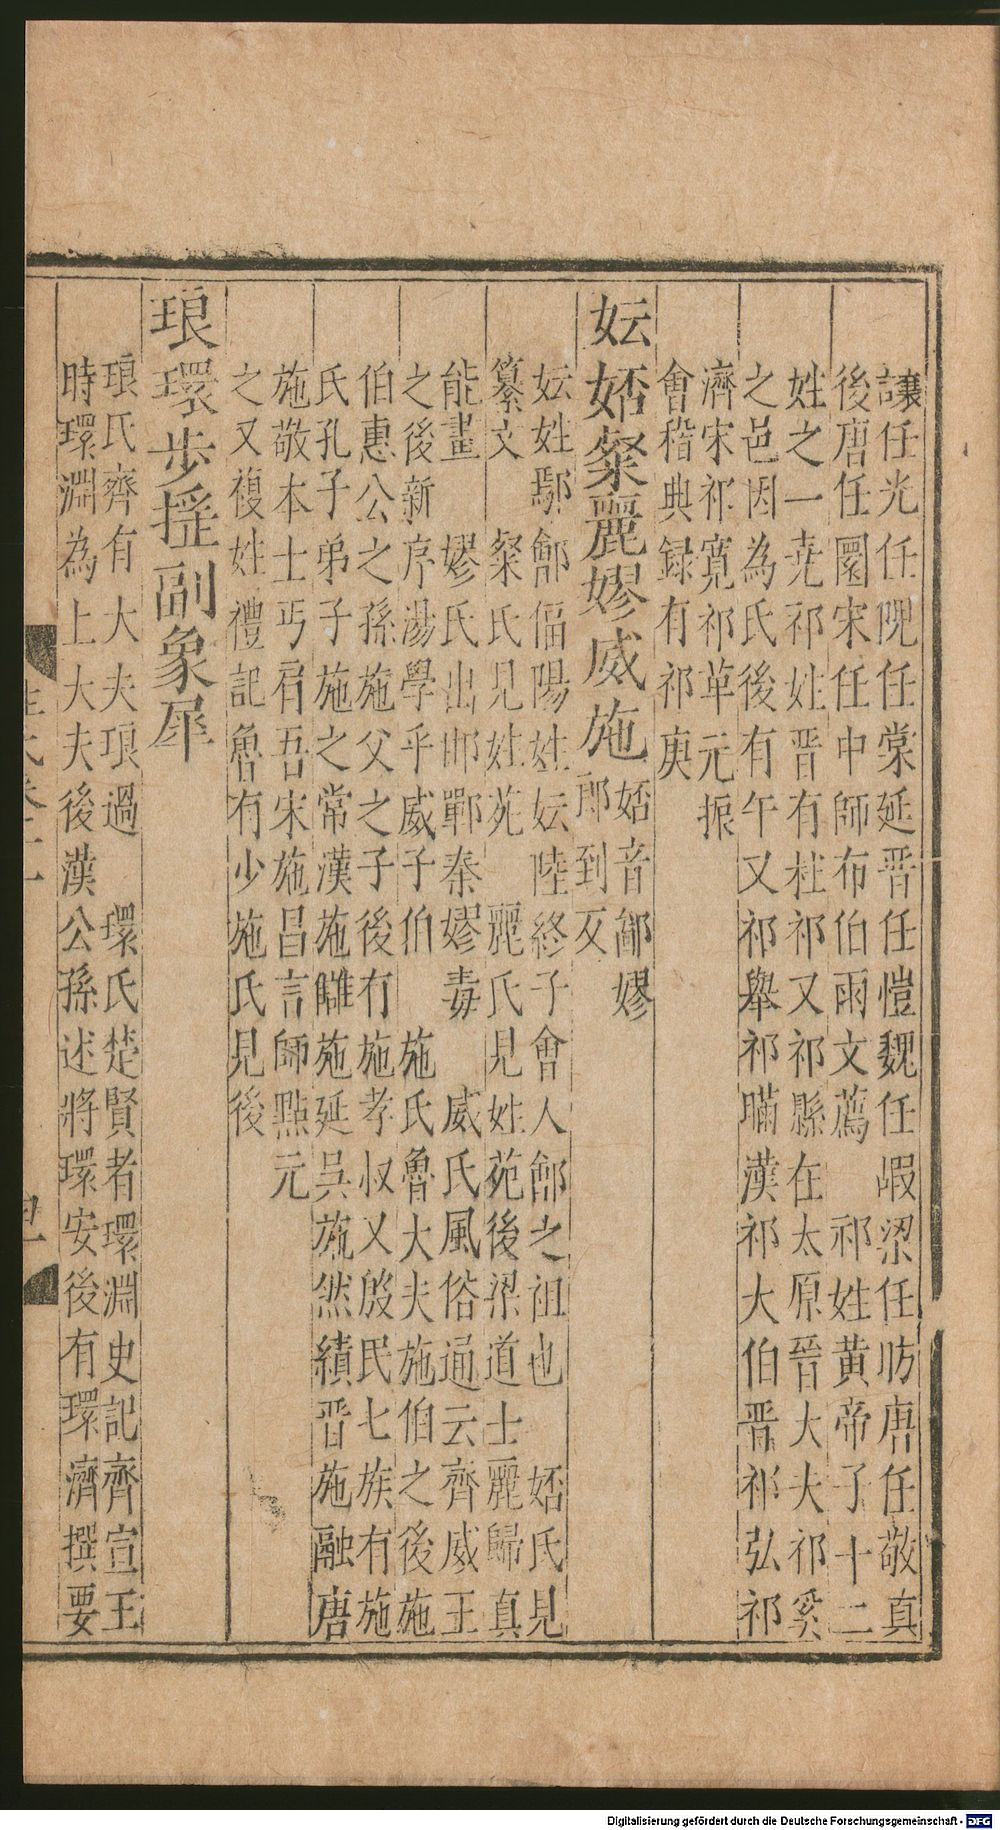 讓任光任隗任棠延晋任愷魏任嘏梁任昉唐任敬真
後唐任圜宋任中師布伯雨文薦 祁姓黃帝子十二
姓之一尭祁姓晋有杜祁又祁縣在太原晉大夫祁奚
之邑因為氏後有午又祁舉祁暪漢祁大伯晋祁弘祁
濟宋祁寬祁革元振
會稽典録有祁庚
妘㛓粲麗嫪威施
㛓音鄗嫪
郎到反
妘姓鄢鄶偪陽姓妘陸終子會人鄶之祖也 㛓氏見
纂文 粲氏見姓苑 麗氏見姓苑後梁道士麗歸真
能畫 嫪氏出邯鄲秦嫪毐 威氏風俗通云齊威王
之後新序湯學乎威子伯 施氏魯大夫施伯之後施
伯惠公之孫施父之子後有施孝叔又殷民七族有施
氏孔子弟子施之常漢施讎施延吳施然績晋施融唐
施敬本士丐肩吾宋施昌言師㸃元
之又複姓禮記魯有少施氏見後
琅環步揺副象犀
琅氏齊有大夫琅過 環氏楚賢者環淵史記齊宣王
時環淵為上大夫後漢公孫述將環安後有環濟撰要
Digitalisierung gefördert durch die Deutsche Forschungsgemeinschaft - DFG